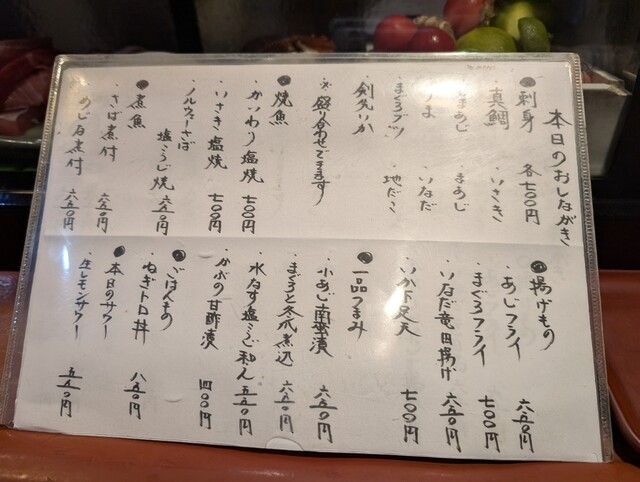 本日のおしながき
●刺身 各七〇〇円
・真鯛 ・いさき
・まあじ
・いなだ
・まぐろブツ ・地だこ
・剣先いか
※盛り合わせできます
●焼魚
・かいわり塩焼 七〇〇円
・いさき塩焼 七〇〇円
・ノルウェーさば
塩こうじ焼 六五〇円
●煮魚
・さば煮付 六五〇円
・めじな煮付 六五〇円
●揚げもの
・あじフライ 六五〇円
・まぐろフライ 七〇〇円
・いなだ竜田揚げ 六五〇円
・いか下足天 七〇〇円
●一品つまみ
・小あじ南蛮漬 六五〇円
・まぐろと冬瓜煮込 六五〇円
・水なす塩こうじ和え 五五〇円
・かぶの甘酢漬 四〇〇円
●ごはんもの
・ねぎトロ丼 八五〇円
●本日のサワー
・生レモンサワー 五五〇円